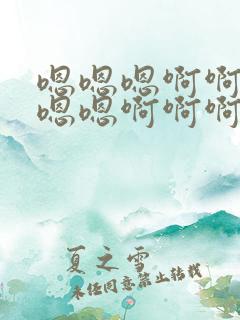 嗯嗯嗯啊啊
嗯嗯啊啊啊
夏之雪
未经同意禁止转载